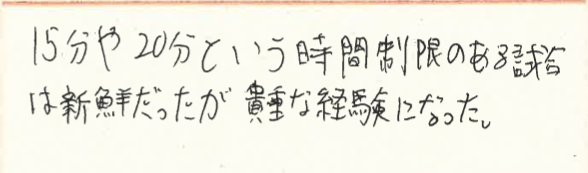 15分や20分という時間制限のある試合
は新鮮だったが貴重な経験になった。